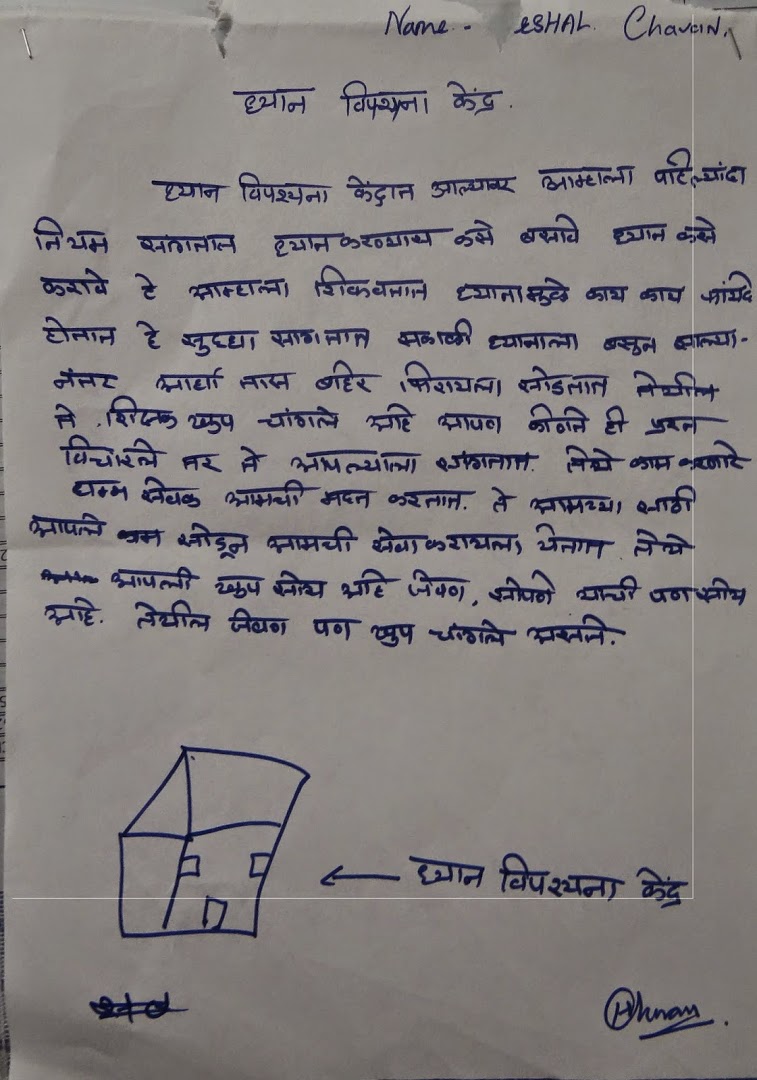 Name - ESHAL. Chavan.
ध्यान विपश्यना केंद्र.
ध्यान विपश्यना केंद्रात आल्यावर आम्हाला पहिल्यांदा
नियम सांगतात ध्यान करण्यास कसे बसावे ध्यान कसे
करावे हे आम्हाला शिकवतात ध्यानामुळे काय काय फायदे
होतात हे सुध्दा सांगतात सकाळी ध्यानाला बसून झाल्या-
नंतर आर्धा तास बाहेर फिरायला सोडतात तेथील
ते शिक्षक खुप चांगले आहे आपण कोणते ही प्रश्न
विचारले तर ते आपल्याला सांगतात. तेथे काम करणारे
धम्म सेवक आमची मदत करतात. ते आमच्या साठी
आपले काम सोडून आमची सेवा करायला येतात तेथे
आपली खुप सोय आहे जेवण, झोपणे याची पण सोय
आहे. तेथील जेवण पण खुप चांगले असते.
← ध्यान विपश्यना केंद्र